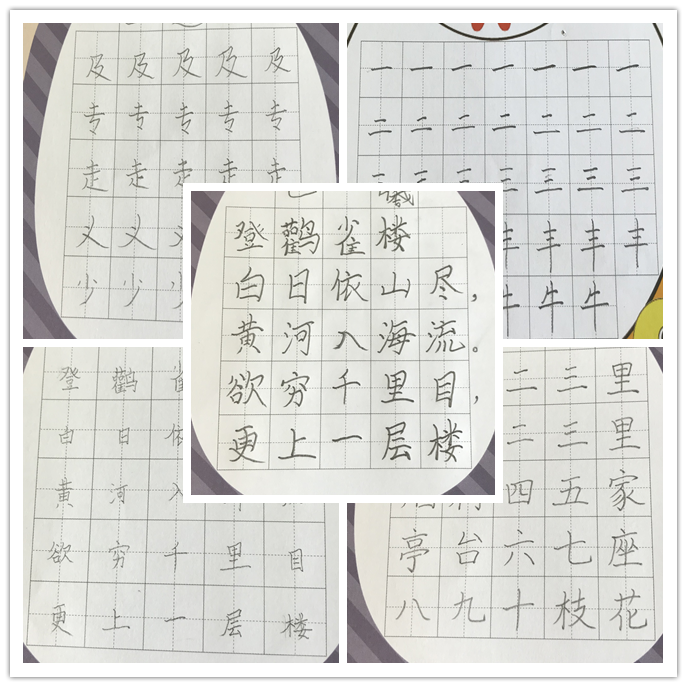 及及及及及
专专专专专
走走走走走
义义
少少
一一一一一一一
二二二二二二二
三三三三
丰丰丰丰
牛牛牛
登鹳雀楼
白日依山尽，
黄河入海流。
欲穷千里目，
更上一层楼
登鹳
白日依
黄河入
欲穷千里目
更上一层楼
二三里
二三里
四五家
亭台六七座
八九十枝花